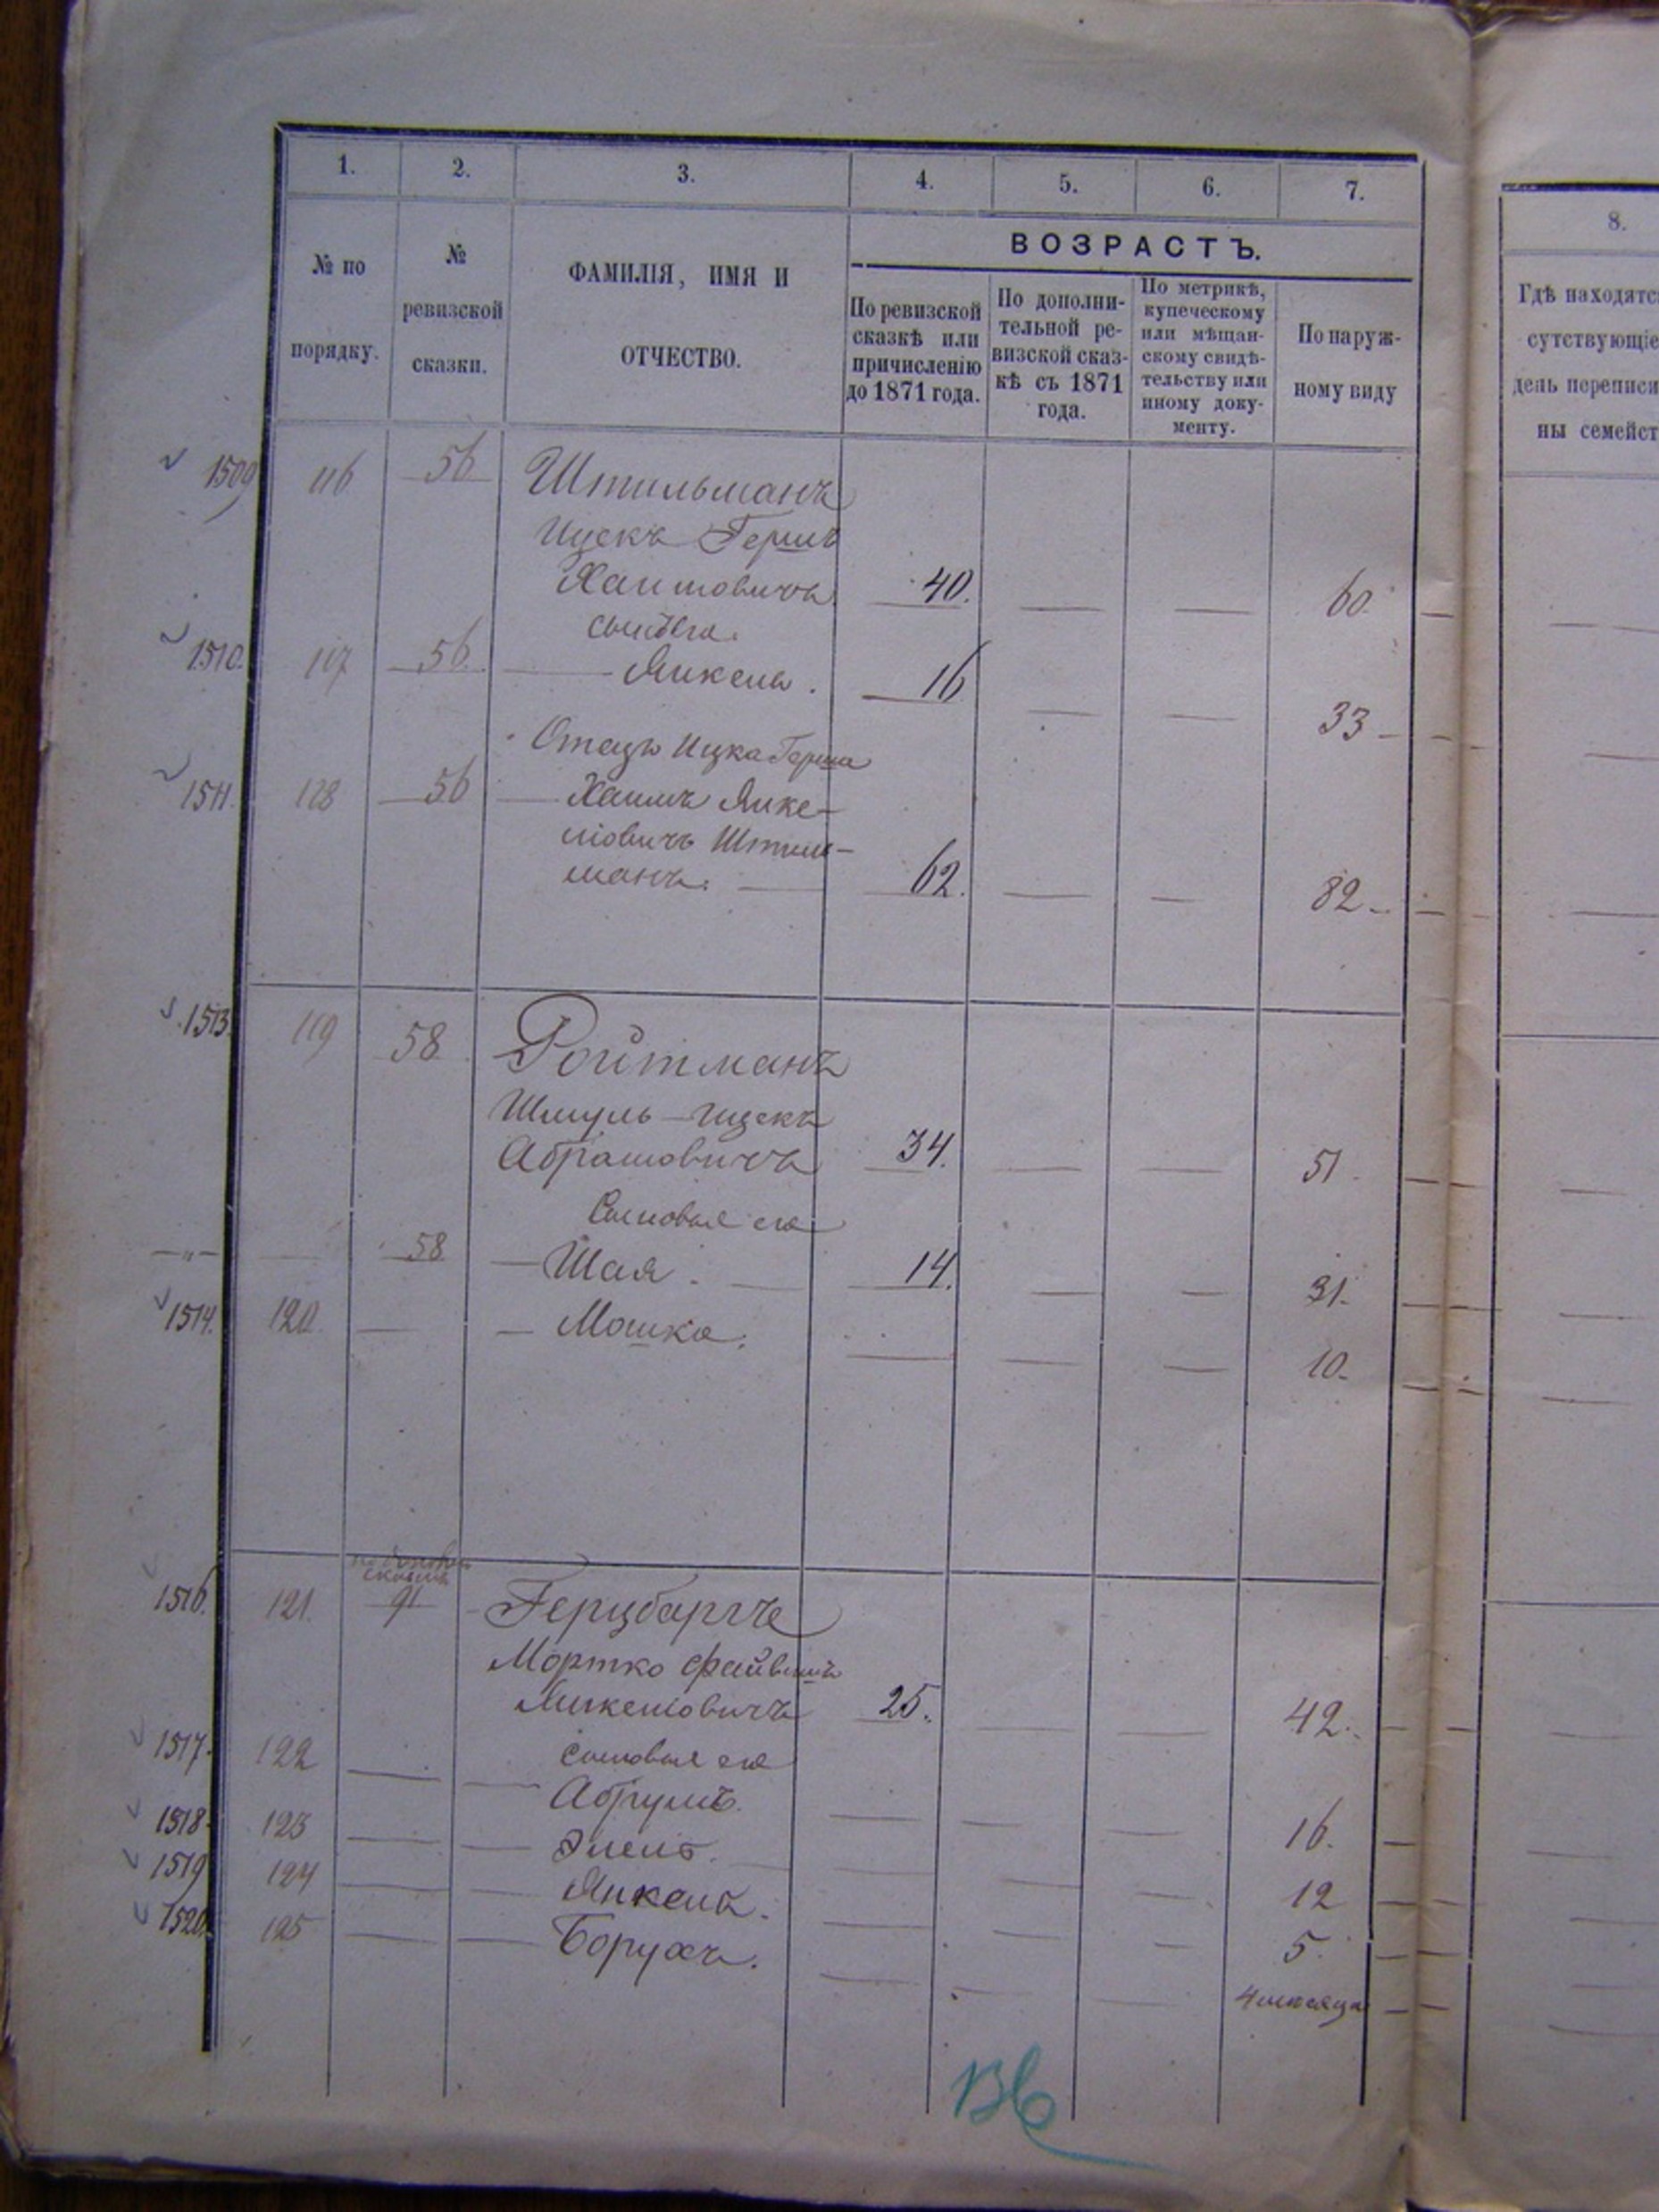 1. 2. 3. 4. 5. 6. 7.
8.
№ по порядку.
№ ревизской сказки.
ФАМИЛІЯ, ИМЯ И ОТЧЕСТВО.
ВОЗРАСТЪ.
По ревизской сказкѣ или причисленію до 1871 года.
По дополни-
тельной ре-
визской сказ-
кѣ съ 1871
года.
По метрикѣ,
купеческому
или мѣщан-
скому свидѣ-
тельству или
иному доку-
менту.
По наруж-
ному виду
Гдѣ находятс
сутствующіе
день переписи
ны семейст
1509 116 56 Штильманъ
Ицекъ Гершъ
Хаимовичъ 40. — — 60.
сынъ его.
1510. 117 56. — Янкель. 16 — — 33
Отецъ Ицка Герша
1511. 118 56 — Хаимъ Янке-
ліовичъ Штиль-
манъ. — 62. — — 82
1513. 119 58 Ройтманъ
Шмуль-Ицекъ
Абрамовичъ 34. — — 51
Сыновья его
—"— — 58 — Шая. — 14. — — 31.
1514. 120. — — Мошко. — — — 10.
1516. 121. 91 Герцбаргъ
Мортко Файвишъ
Янкеліовичъ 25. — — 42.
сыновья его
1517. 122 — — Абрумъ. — — — 16.
1518. 123 — — — — — 12
1519 124 — — Янкель. — — — 5.
1520. 125 — — Борухъ. — — — 4 мѣсяца
136